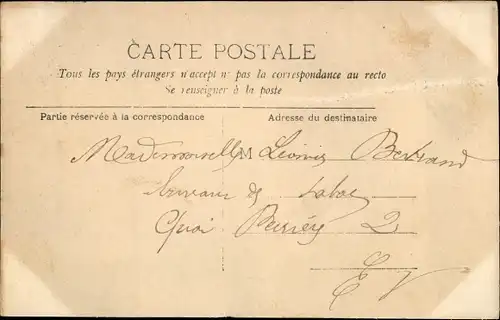 CARTE POSTALE
Tous les pays étrangers n'accept nt pas la correspondance au recto
Se renseigner à la poste
Partie réservée à la correspondance
Adresse du destinataire
M
Mademoiselle Bertrand
de tabac
Quai 2
E V